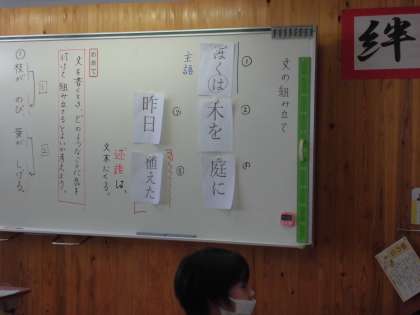 絆
文の組み立て
①
ぼくは
主語
②
木を
④
庭に
昨日
⑤
植えた
述語は、
文末にくる。
めあて
文を書くとき、どのようなことに気を
付けて組み立てるとよいか考えよう。
①枝が のび、葉が しげる。
1
2